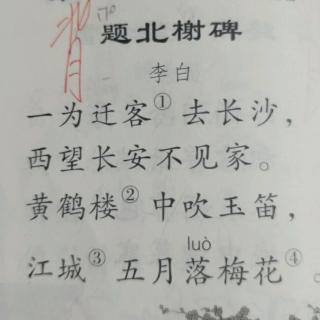 背
170
题北榭碑
李白
一为迁客① 去长沙，
西望长安不见家。
黄鹤楼② 中吹玉笛，
luò
江城③ 五月落梅花④。